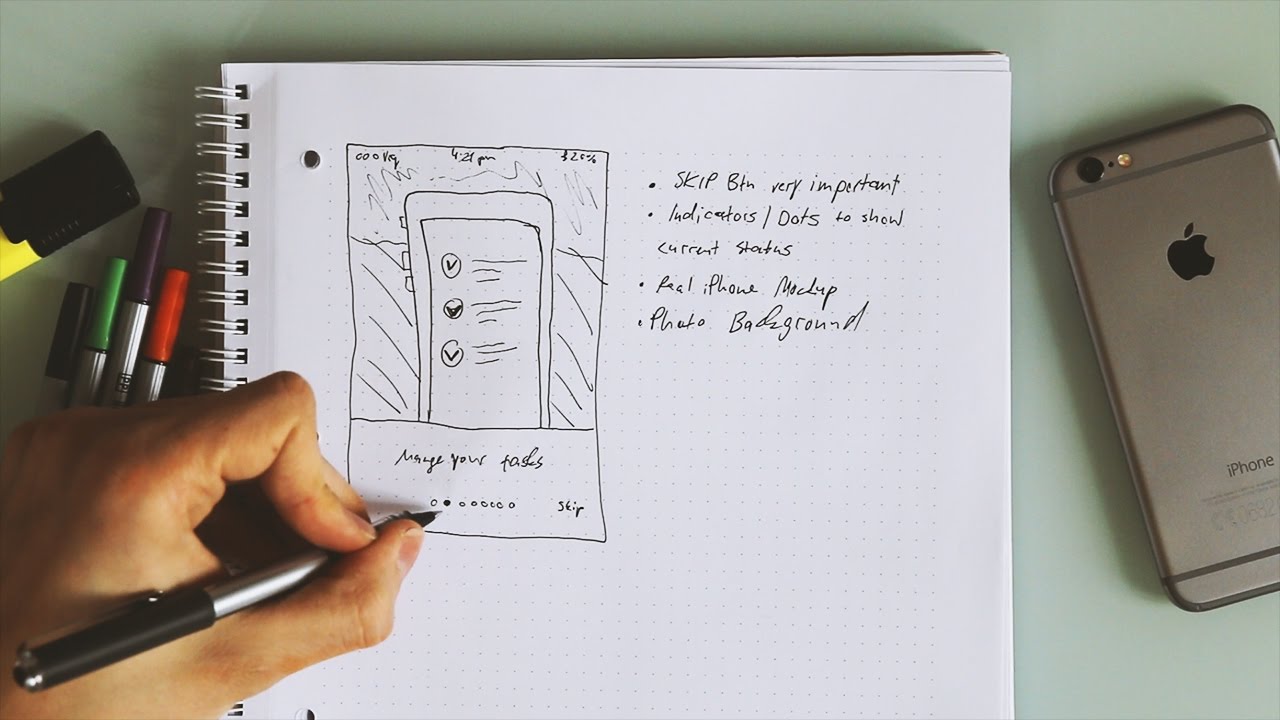 4:21 pm
Manage your tasks
Skip
• SKIP Btn very important
• Indicators / Dots to show
current status
• Real iPhone Mockup
• Photo Background
iPhone